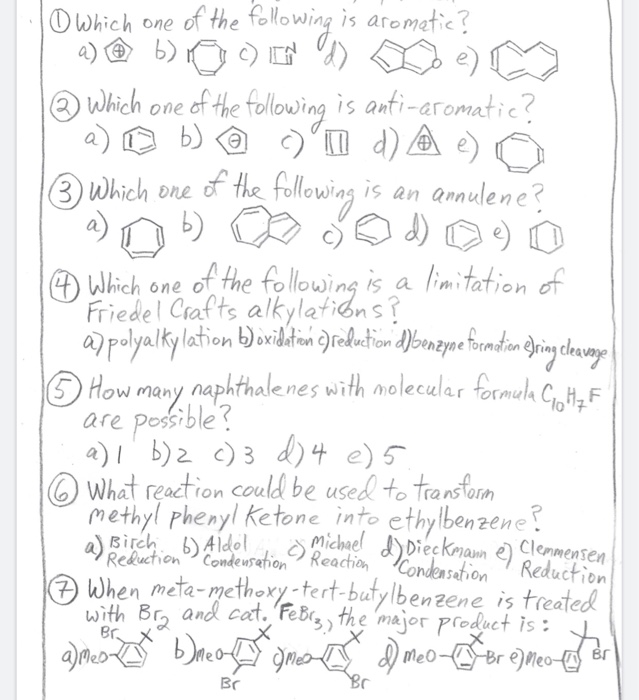 ① Which one of the following is aromatic?
a) ⊕ b) c) d) e)
② Which one of the following is anti-aromatic?
a) b) ⊖ c) d) ⊕ e)
③ Which one of the following is an annulene?
a) b) c) d) e)
④ Which one of the following is a limitation of
Friedel Crafts alkylations?
a) polyalkylation b) oxidation c) reduction d) benzyne formation e) ring cleavage
⑤ How many naphthalenes with molecular formula C₁₀H₇F
are possible?
a) 1 b) 2 c) 3 d) 4 e) 5
⑥ What reaction could be used to transform
methyl phenyl Ketone into ethylbenzene?
a) Birch Reduction b) Aldol Condensation c) Michael Reaction d) Dieckmann Condensation e) Clemmensen Reduction
⑦ When meta-methoxy-tert-butylbenzene is treated
with Br₂ and cat. FeBr₃, the major product is:
a) MeO Br b) MeO Br c) MeO Br d) MeO Br e) MeO Br